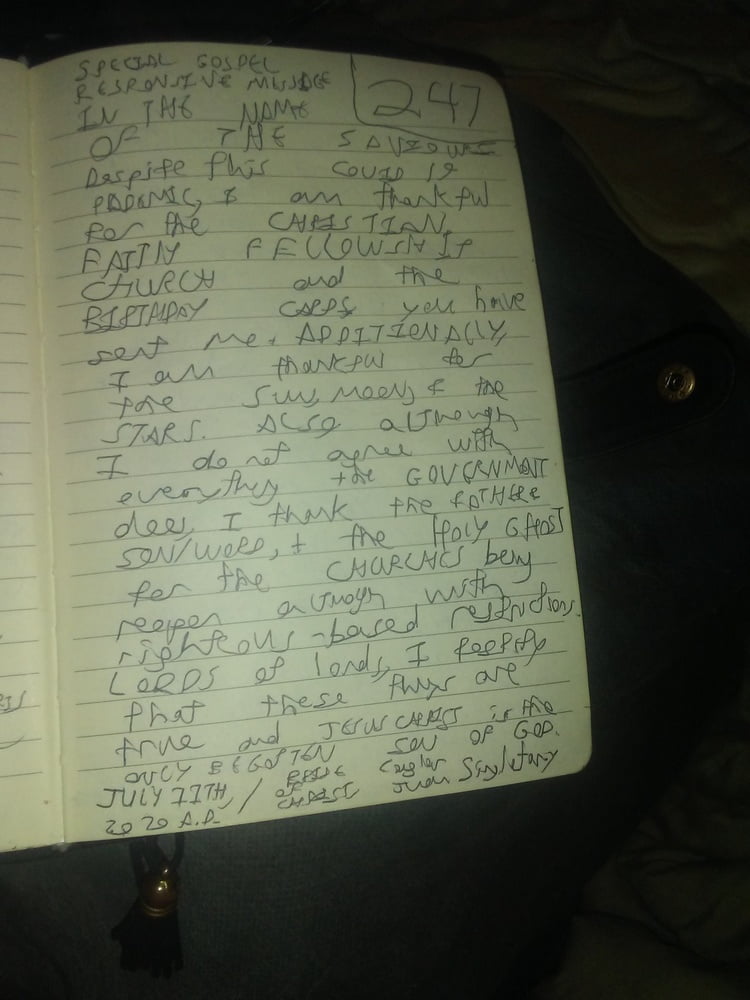 SPECIAL GOSPEL
RESPONSIVE MESSAGE
247
IN THE NAME
OF THE SAVIOUR
Despite this COVID 19
PADEMIC, I am thankful
for the CHRISTIAN
FAITH FELLOWSHIP
CHURCH and the
BIRTHDAY CARDS you have
sent me. ADDITIENALLY,
I am thankful for
the SUN, MOON, & the
STARS. ALSO although
I do not agree with
everything the GOVERNMENT
does, I thank the FATHER
SON/WORD, & the HOLY GHOST
for the CHURCHES being
reopen although with
righteous-based restrictions.
LORDS of lords, I testify
that these things are
true and JESUS CHRIST is the
ONLY BEGOTTEN SON OF GOD.
JULY 11TH, / BRIDE OF CHRIST Juan Singletary
2020 A.D.